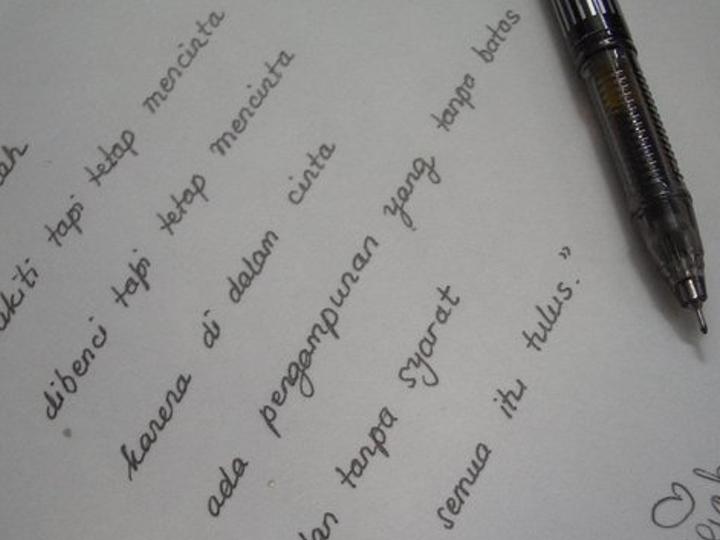 tapi tetap mencinta
dibenci tapi tetap mencinta
karena di dalam cinta
ada pengampunan yang tanpa batas
tanpa syarat
semua itu tulus."